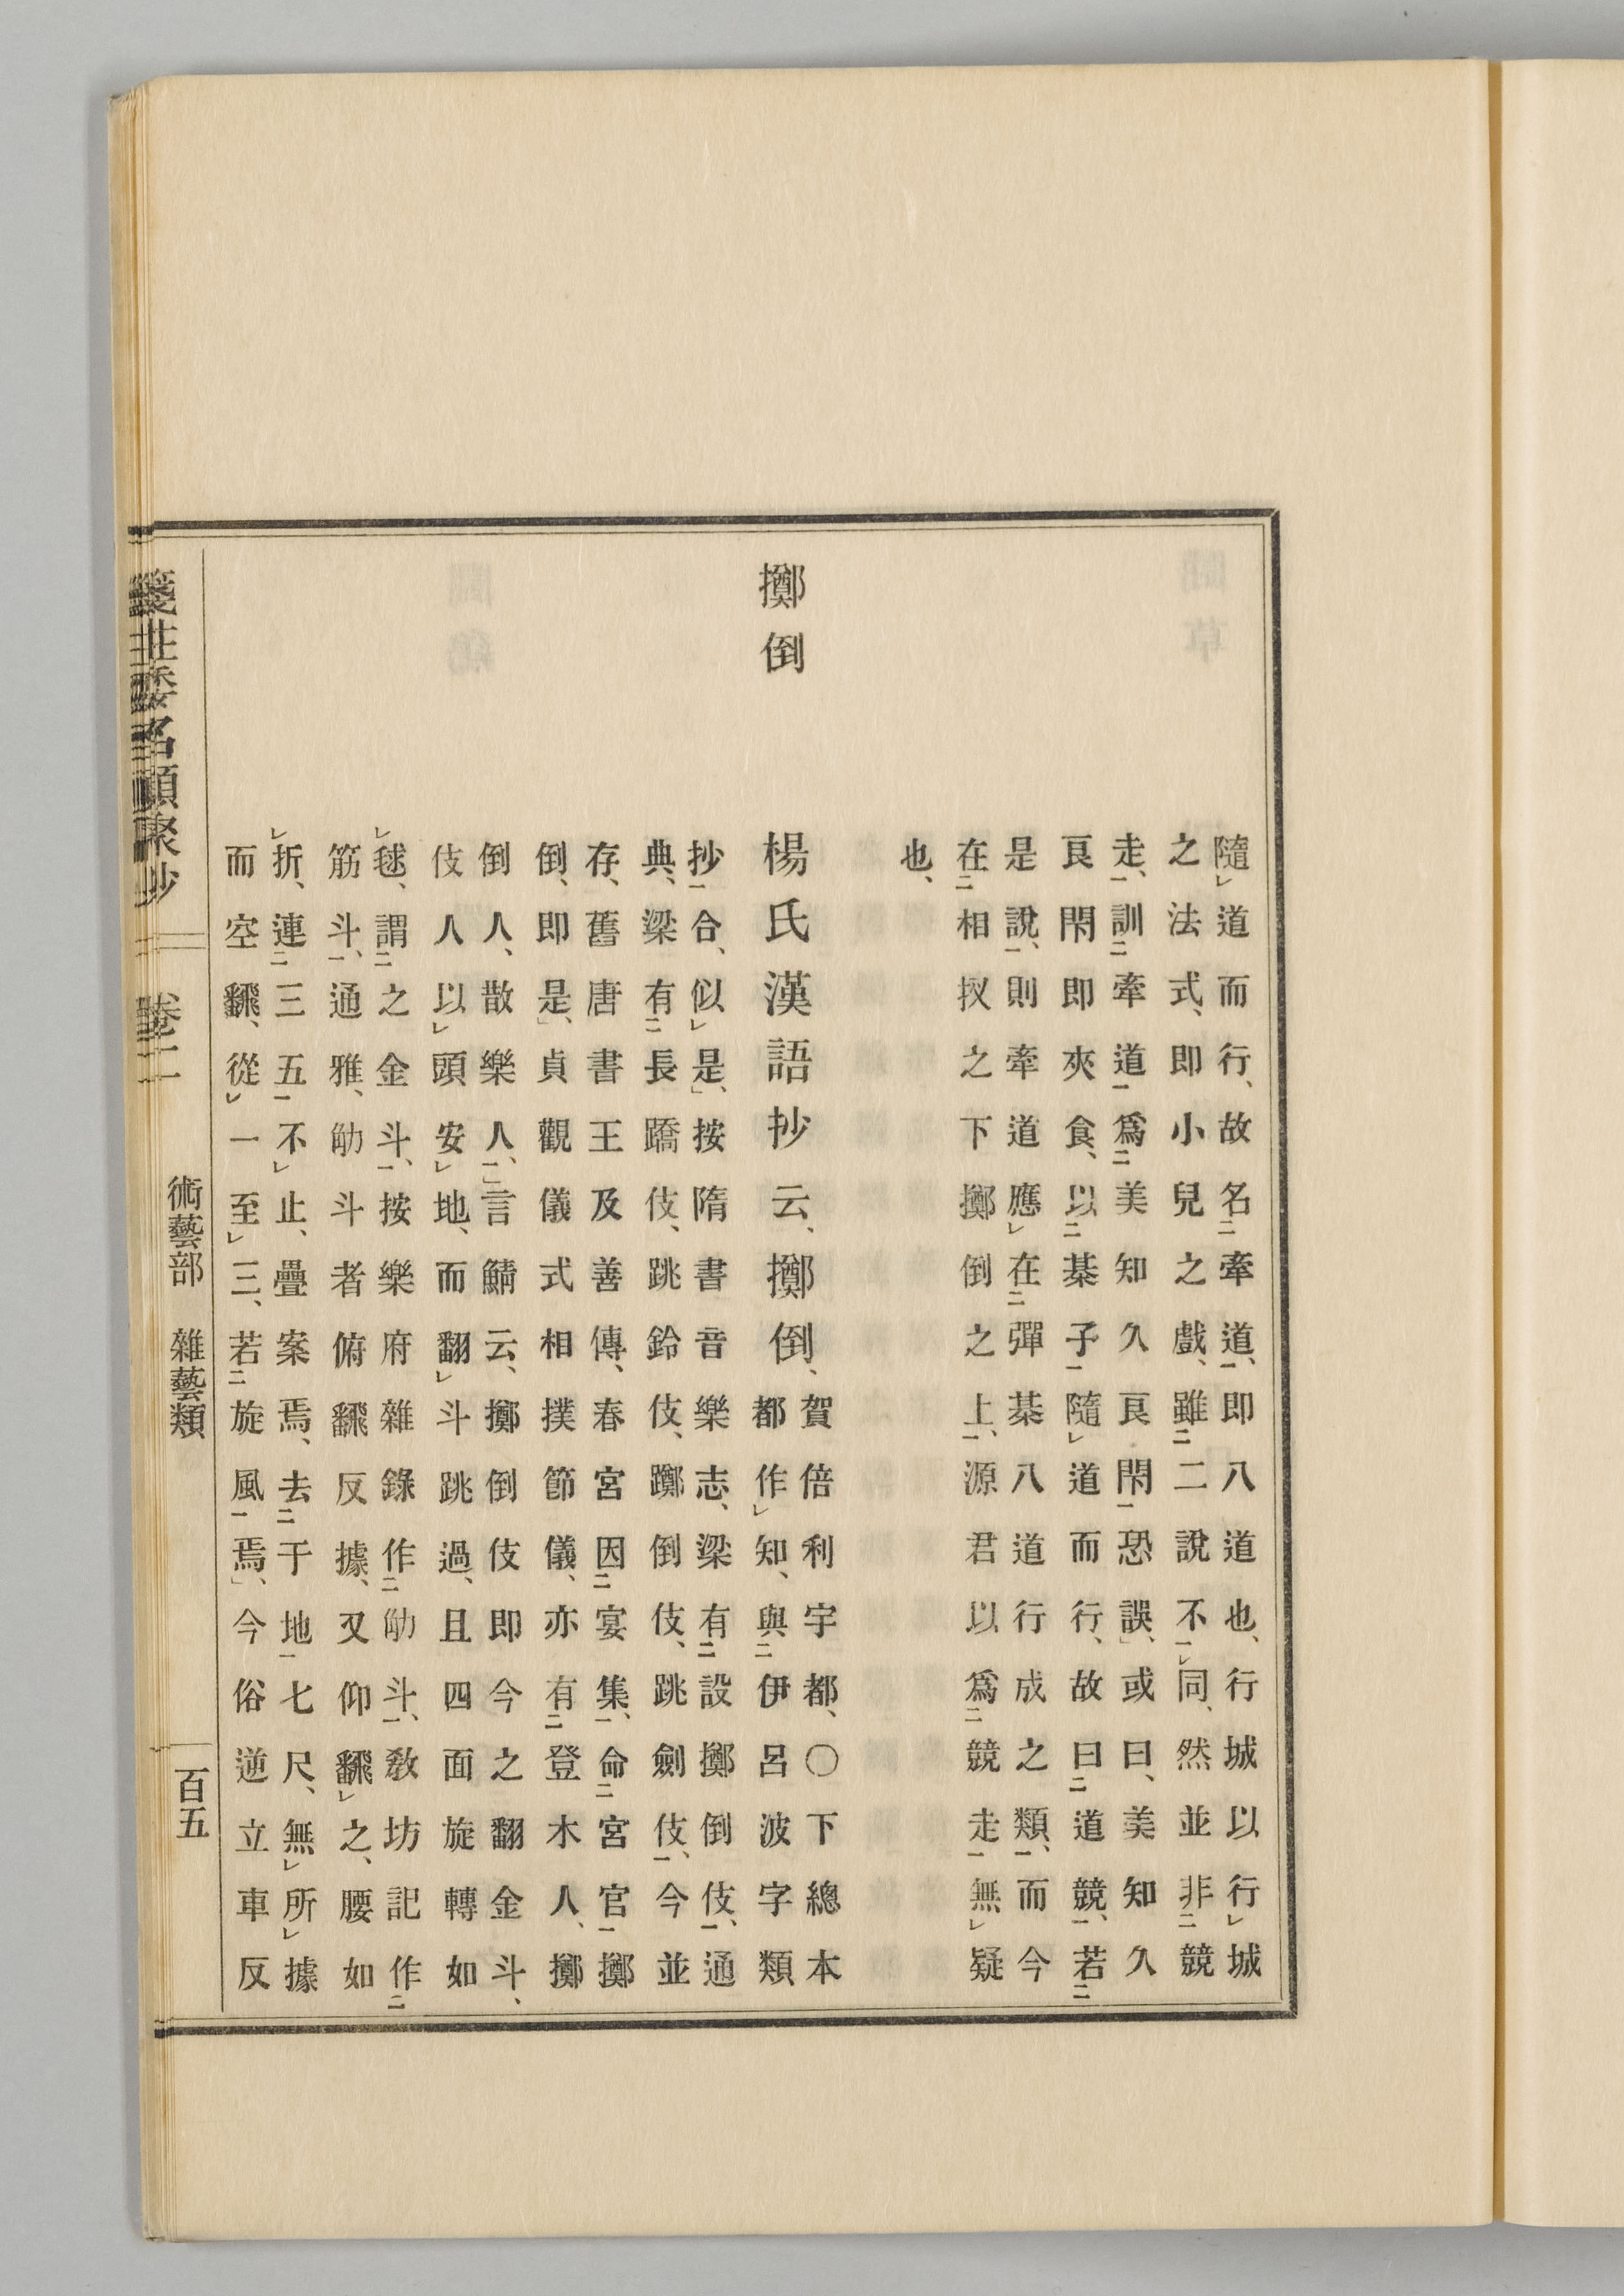 隨㆑道而行、故名㆓牽道㆒、即八道也、行城以行㆑城
之法式、即小兒之戲、雖㆓二說不㆒㆑同、然並非㆓競
走㆒、訓㆓牽道㆒爲㆓美知久良閑㆒恐誤、」或曰、美知久
良閑即夾食、以㆓棊子㆒隨㆑道而行、故曰㆓道競㆒、若㆓
是說㆒、則牽道應㆑在㆓彈棊八道行成之類㆒、而今
在㆓相扠之下擲倒之上㆒、源君以爲㆓競走㆒無㆑疑
也、
擲倒
楊氏漢語抄云、擲倒、
賀倍利宇都、〇下總本
都作㆑知、與㆓伊呂波字類
抄㆒合、似㆑是、」按隋書音樂志、梁有㆓設擲倒伎㆒、通
典、梁有㆓長蹻伎、跳鈴伎、躑倒伎、跳劍伎㆒、今並
存、舊唐書王及善傳、春宮因㆓宴集㆒、命㆓宮官㆒擲
倒、即是、」貞觀儀式相撲節儀、亦有㆓登木人、擲
倒人、散樂人㆒、」言鯖云、擲倒伎即今之翻金斗、
伎人以㆑頭安㆑地、而翻㆑斗跳過、且四面旋轉如
㆑毬、謂㆓之金斗㆒、按樂府雜錄作㆓觔斗㆒、敎坊記作㆓
筋斗㆒、通雅、觔斗者俯飜反據、又仰飜㆑之、腰如
㆑折、連㆓三五㆒不㆑止、疊案焉、去㆓于地㆒七尺、無㆑所㆑據
而空飜、從㆑一至㆑三、若㆓旋風㆒焉、」今俗逆立車反
箋注倭名類聚抄 卷二 術藝部 雜藝類 百五